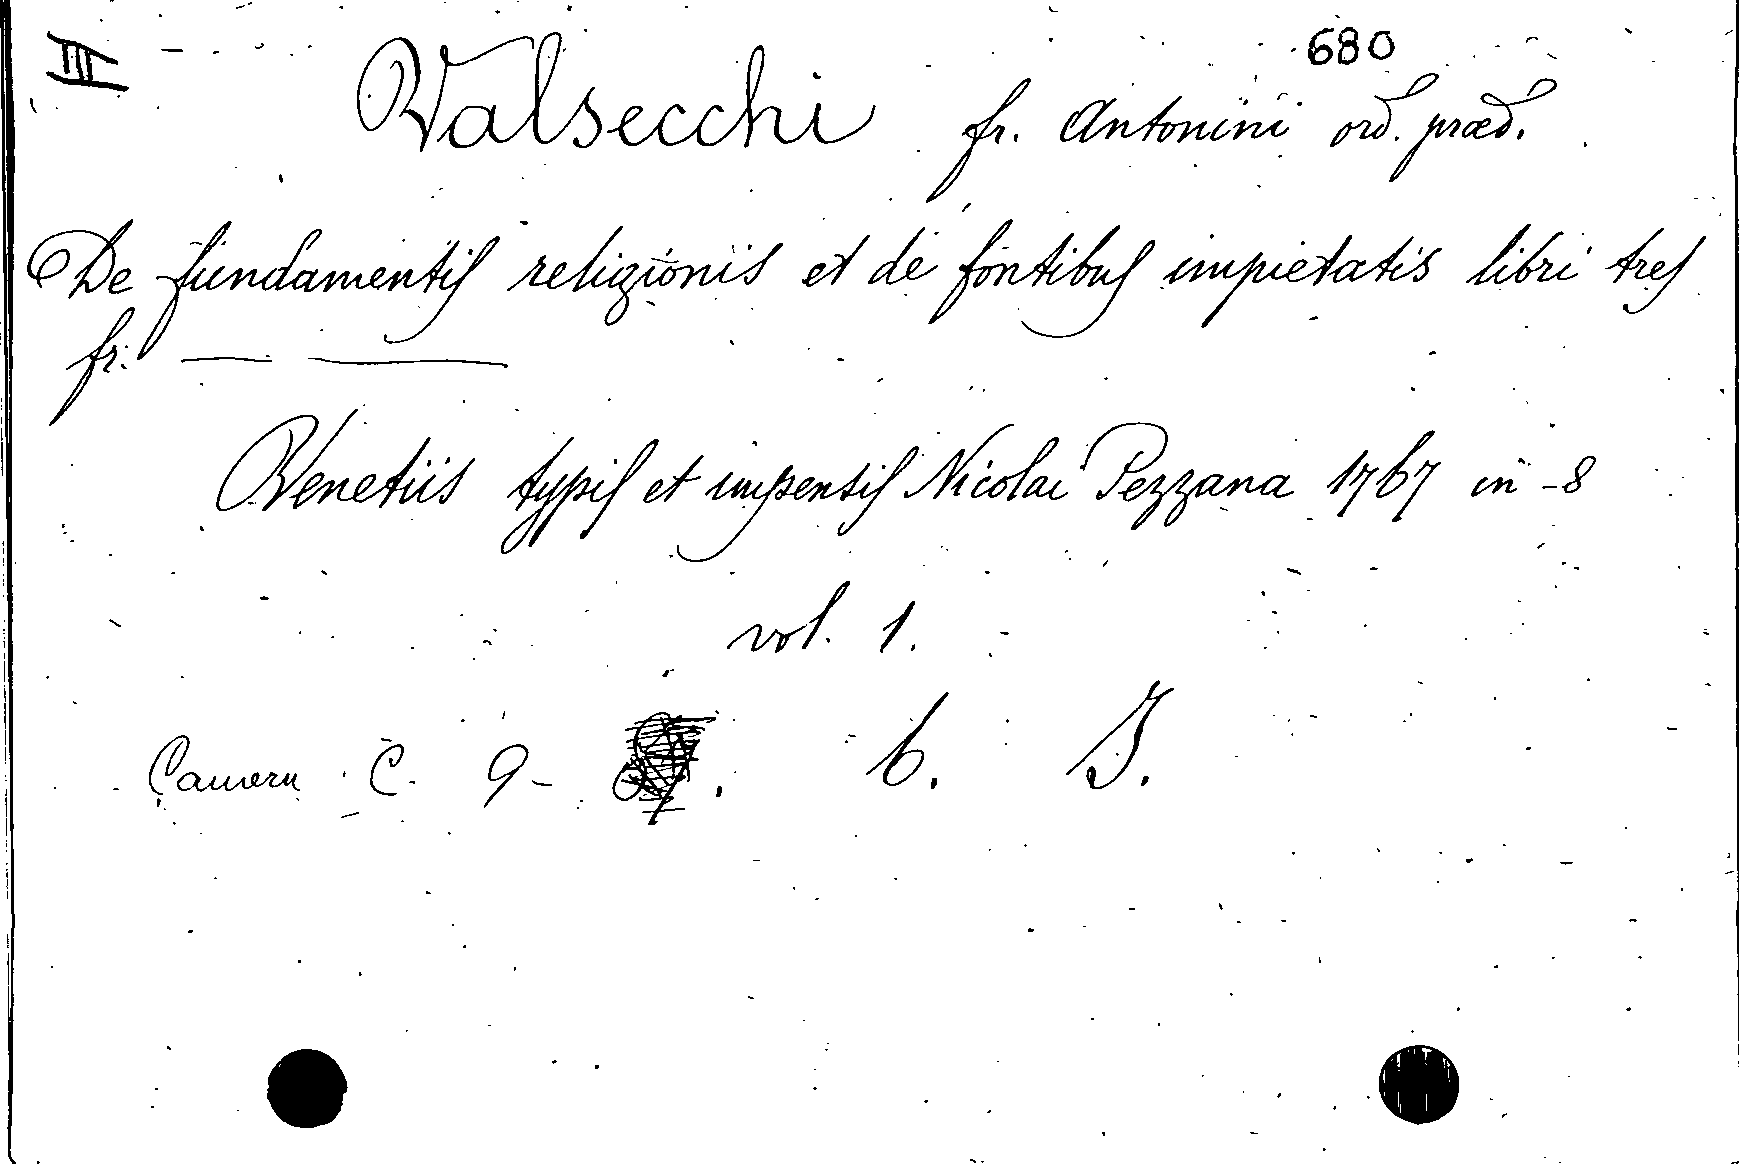 III 680
Valsecchi fr. Antonini ord. præd.
De fundamentis religionis et de fontibus impietatis libri tres
fr. — —
Venetiis typis et impensis Nicolai Pezzana 1767 in-8
vol. 1.
Camera C. 9- 6. J.